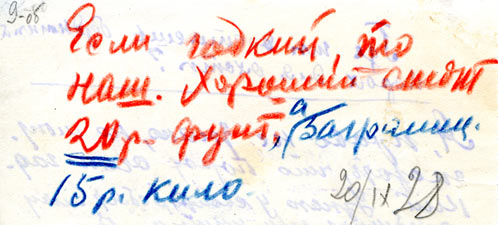 9-ое
Если гадкий, то
наш. Хороший стоит
20р. фунт, а Баграмиц.
15 р. кило
20/IX 28